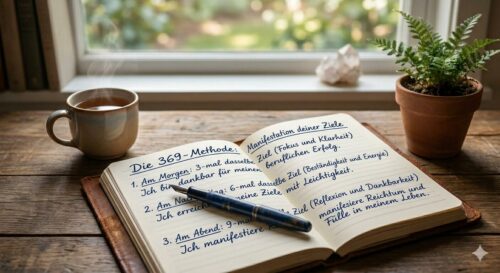 Die 369-Methode:
1. Am Morgen: 3-mal dasselbe
Ich dankbar für
2. Am 6-mal dasselbe
Ich Ziele
3. Am Abend:
Ich manifestiere
Manifestation deiner Ziele
Ziel (Fokus und Klarheit)
beruflichen Erfolg.
Ziel (Beständigkeit und Energie)
mit Leichtigkeit.
Ziel (Reflexion und Dankbarkeit)
manifestiere Reichtum und
Fülle in meinem Leben.